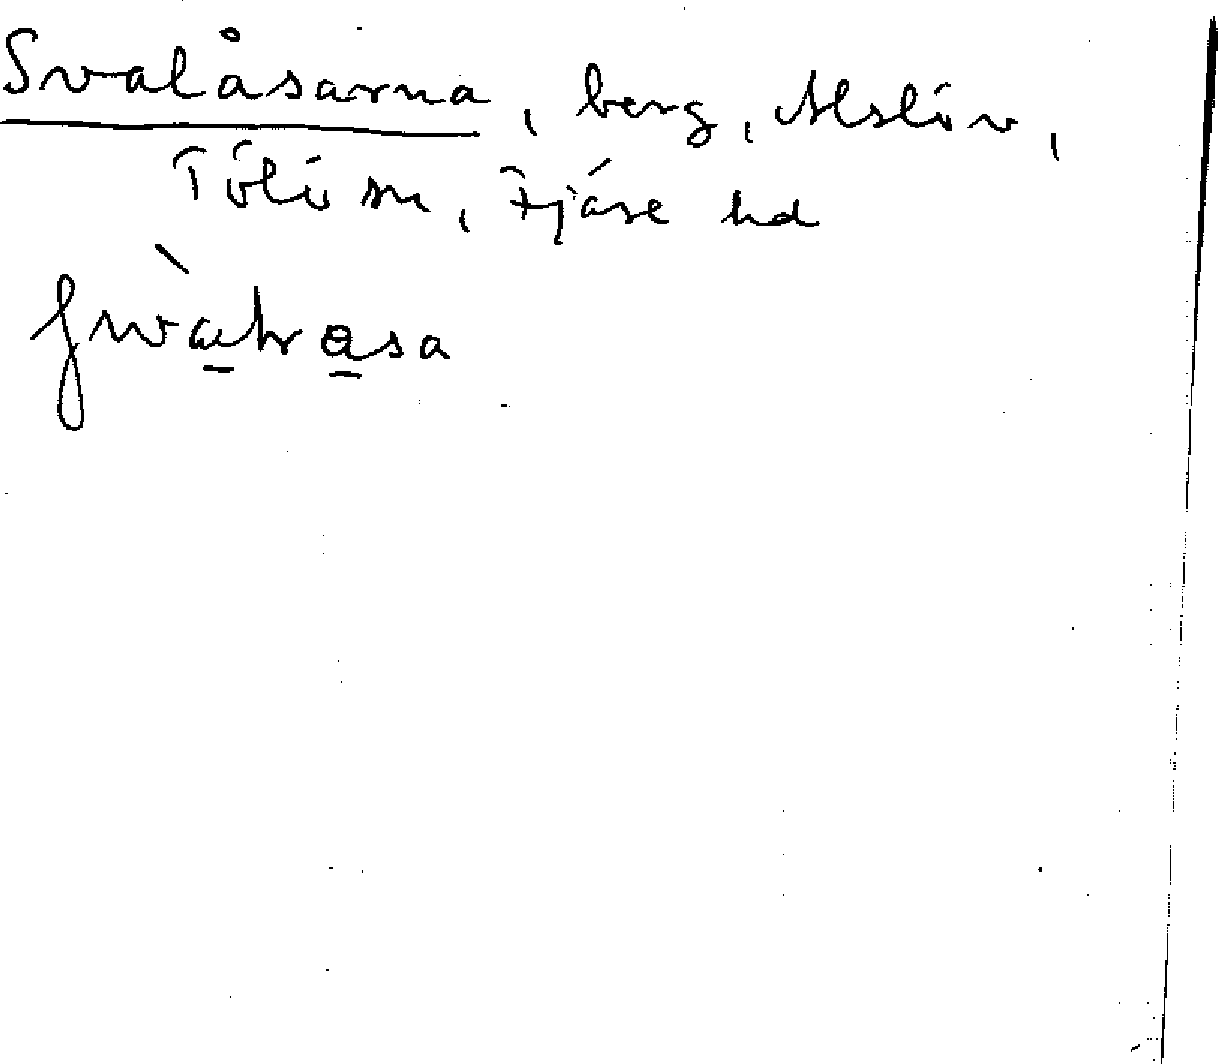 Svalåsarna, berg, Alslöv,
Tölö sn, Fjäre hd